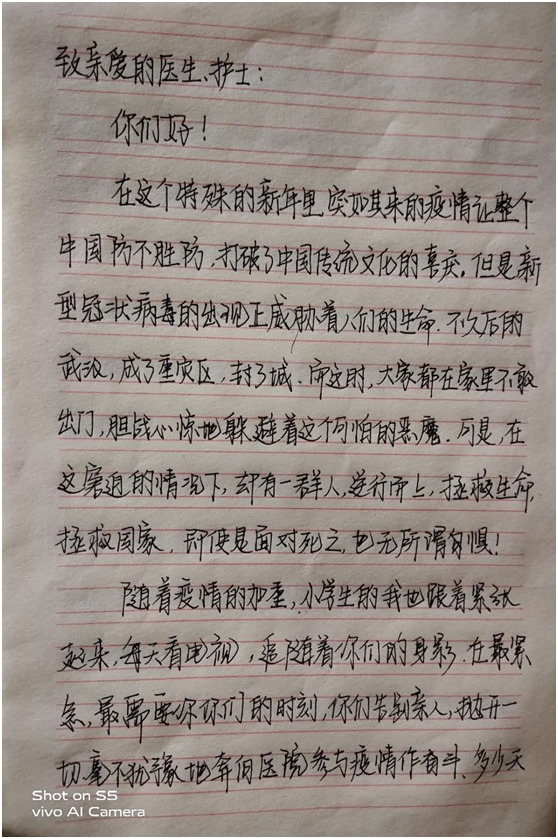 致亲爱的医生、护士：
你们好！
在这个特殊的新年里,突如其来的疫情让整个
中国防不胜防,打破了中国传统文化的喜庆。但是新
型冠状病毒的出现正威胁着人们的生命.不久后的
武汉,成了重灾区,封了城.而这时,大家都在家里不敢
出门,胆战心惊地躲避着这个可怕的恶魔.可是,在
这窘迫的情况下,却有一群人,逆行而上,拯救生命,
拯救国家.即使是面对死亡,也无所谓惧!
随着疫情的加重,小学生的我也跟着紧张
起来,每天看电视,追随着你们的身影.在最紧
急,最需要你你们的时刻,你们告别亲人,抛开一
切毫不犹豫地奔向医院参与疫情作奋斗、多少天
Shot on S5
vivo AI Camera